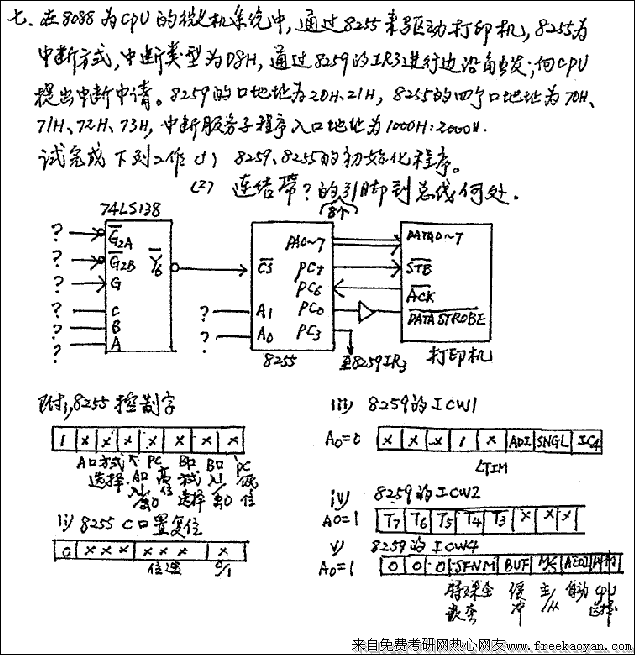 七、在8088为CPU的微机系统中,通过8255来驱动打印机,8255为
中断方式,中断类型为D8H,通过8259的IR3进行边沿触发,向CPU
提出中断申请。8259的口地址为20H、21H,8255的四个口地址为70H、
71H、72H、73H,中断服务子程序入口地址为1000H:2000H.
试完成下列工作(1) 8259、8255的初始化程序。
(2) 连结带?的引脚到总线何处.
8个
74LS138
? G2A
? G2B Y6
? G
? C
? B
? A
PA0~7 DATA0~7
CS PC7 STB
PC6 ACK
? A1 PC0 DATA STROBE
? A0 PC3
8255 至8259IR3 打印机
附i,8255控制字
1 x x x x x x x
A口方式选择 A口入/出 PC高位 B口方式选择 B口入/出 PC低位
ii) 8255 C口置复位
0 x x x x x x x
位选 0/1
iii) 8259的ICW1
A0=0 x x x 1 x ADI SNGL IC4
LTIM
iv) 8259的ICW2
A0=1 T7 T6 T5 T4 T3 x x x
v) 8259的ICW4
A0=1 0 0 0 SFNM BUF M/S AEOI
特殊全嵌套 缓冲 主/从 自动 CPU选择
来自免费考研网热心网友www.freekaoyan.com